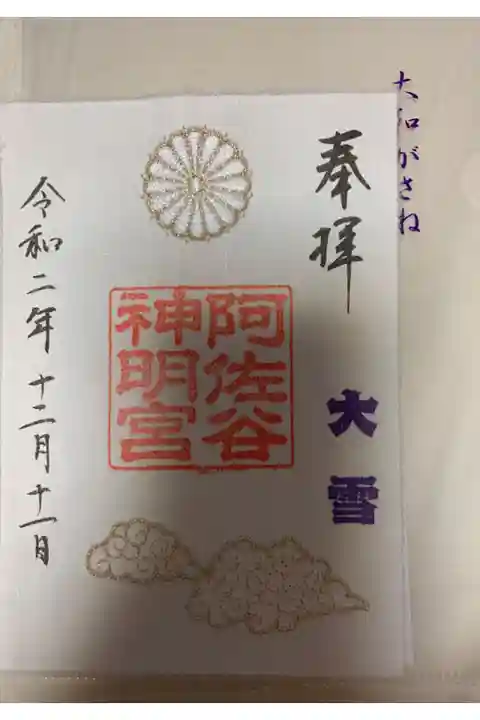 大和がさね
奉拝
大雪
阿佐谷
神明宮
令和二年十二月十一日